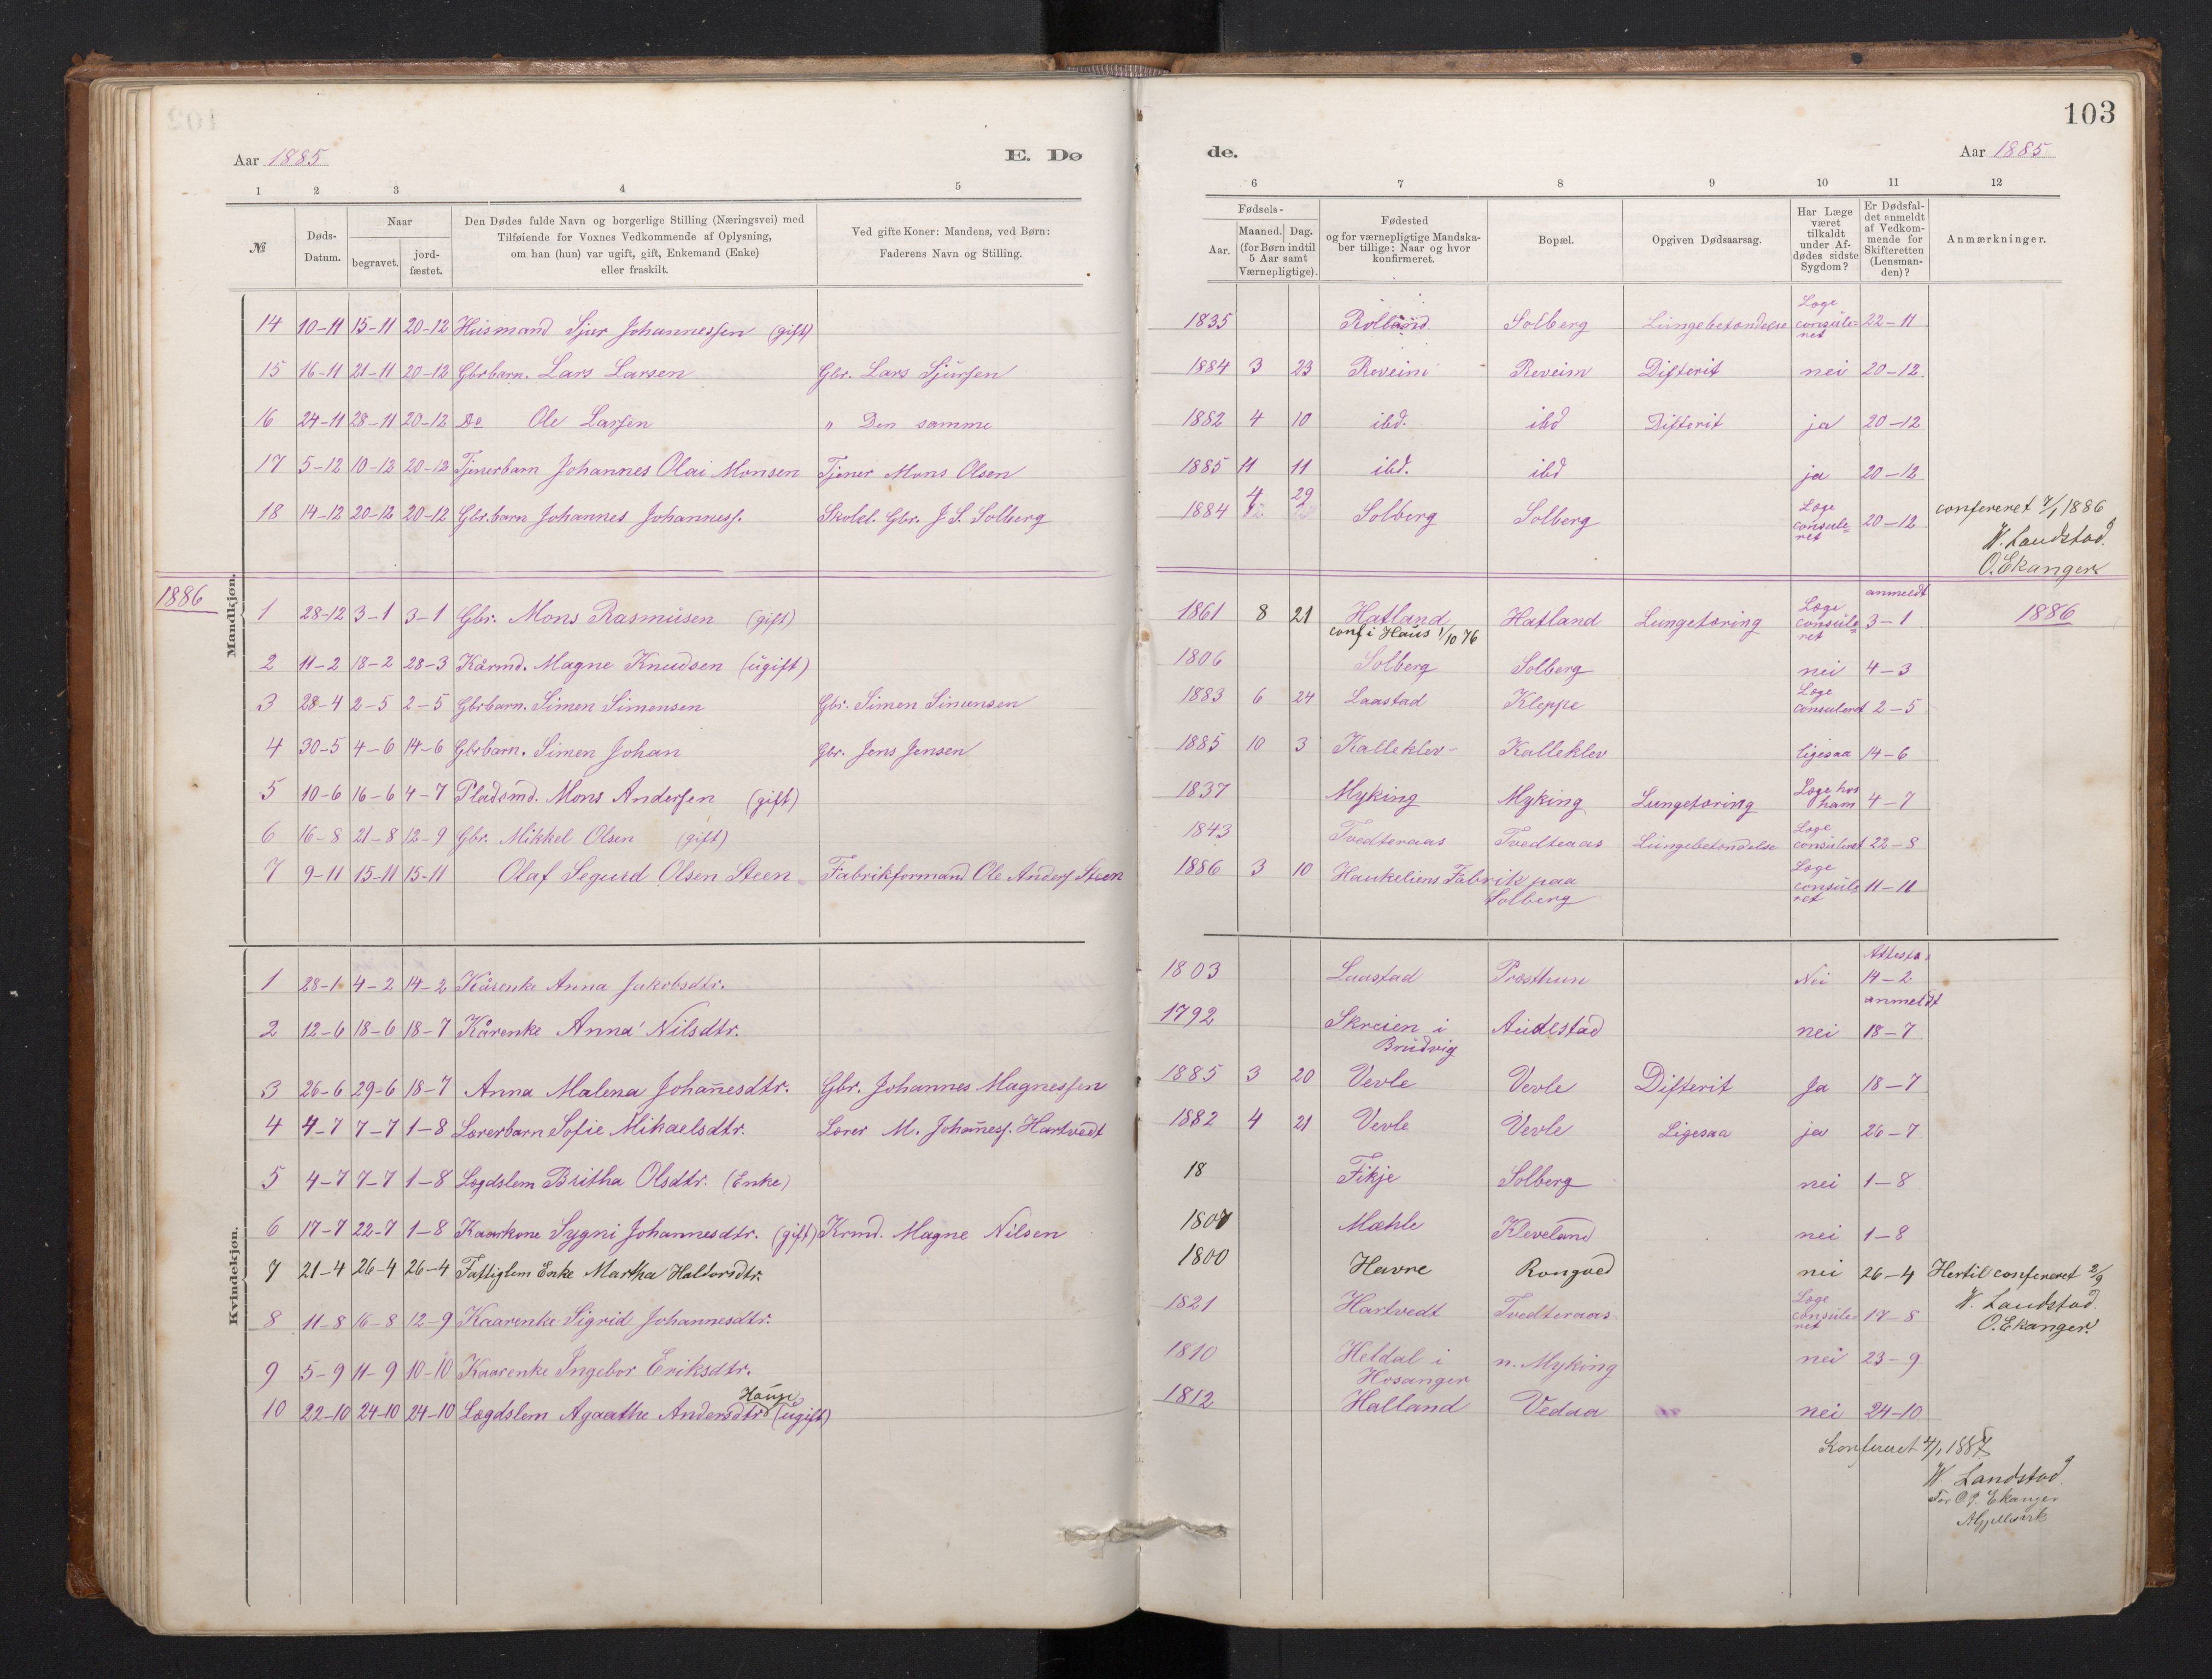 103
Aar 1885 E. Dø de. Aar 1885
1 2 3 4 5 6 7 8 9 10 11 12
№
Døds-Datum.
Naar
begravet.
jord-fæstet.
Den Dødes fulde Navn og borgerlige Stilling (Næringsvei) med
Tilføiende for Voxnes Vedkommende af Oplysning,
om han (hun) var ugift, gift, Enkemand (Enke)
eller fraskilt.
Ved gifte Koner: Mandens, ved Børn:
Faderens Navn og Stilling.
Fødsels-
Aar.
Maaned. Dag.
(for Børn indtil
5 Aar samt
Værnepligtige).
Fødested
og for værnepligtige Mandska-
ber tillige: Naar og hvor
konfirmeret.
Bopæl.
Opgiven Dødsaarsag.
Har Læge
været
tilkaldt
under Af-
dødes sidste
Sygdom?
Er Dødsfal-
det anmeldt
af Vedkom-
mende for
Skifteretten
(Lensman-
den)?
Anmærkninger.
Mandkjøn.
14 10-11 15-11 20-12 Husmand Sjur Johannessen (gift) 1835 Rolland Solberg Lungebetændelse Læge consuleret 22-11
15 16-11 21-11 20-12 Gbrbarn. Lars Larsen Gbr. Lars Sjursen 1884 3 23 Reveim Reveim Difterit nei 20-12
16 24-11 28-11 20-12 Do Ole Larsen " Den samme 1882 4 10 ibd. ibd Difterit ja 20-12
17 5-12 10-12 20-12 Tjenerbarn Johannes Olai Monsen Tjener Mons Olsen 1885 11 11 ibd. ibd ja 20-12
18 14-12 20-12 20-12 Gbr.barn Johannes Johanness. Skolel. Gbr. J. S. Solberg 1884 4 29 Solberg Solberg Læge consuleret 20-12 confereret 7/1 1886
W. Landstad.
O. Ekanger
1886 anmeldt 1886
1 28-12 3-1 3-1 Gbr. Mons Rasmusen (gift) 1861 8 21 Hatland Hatland Lungetæring Læge consuleret 3-1
conf i Haus 1/10 76
2 11-2 18-2 28-3 Kårmd. Magne Knudsen (ugift) 1806 Solberg Solberg nei 4-3
3 28-4 2-5 2-5 Gbrbarn. Simen Simensen Gbr. Simen Simensen 1883 6 24 Laastad Kleppe Læge consuleret 2-5
4 30-5 4-6 14-6 Gbrbarn. Simen Johan Gbr. Jens Jensen 1885 10 3 Kalleklev Kalleklev ligesaa 14-6
5 10-6 16-6 4-7 Pladsmd. Mons Andersen (gift) 1837 Myking Myking Lungetæring Læge hos ham 4-7
6 16-8 21-8 12-9 Gbr. Mikkel Olsen (gift) 1843 Tvedteraas Tvedteraas Lungebetændelse Læge consuleret 22-8
7 9-11 15-11 15-11 Olaf Segurd Olsen Steen Fabrikformand Ole Anders Steen 1886 3 10 Haukeliens Fabrik paa Solberg Læge consuleret 11-11
Kvindekjøn.
Attesta
1 28-1 4-2 14-2 Kårenke Anna Jakobsdtr. 1803 Laastad Præsthun Nei 14-2
anmeldt
2 12-6 18-6 18-7 Kårenke Anna Nilsdtr. 1792 Skreien i Brudvig Audestad nei 18-7
3 26-6 29-6 18-7 Anna Malena Johan̄esdtr. Gbr. Johannes Magnessen 1885 3 20 Vevle Vevle Difterit Ja 18-7
4 4-7 7-7 1-8 Lærerbarn Sofie Mikaelsdtr. Lærer M. Johan̄ess. Hartvedt 1882 4 21 Vevle Vevle Ligesaa ja 26-7
5 4-7 7-7 1-8 Lægdslem Britha Olsdtr. (Enke) 18 Fikje Solberg nei 1-8
6 17-7 22-7 1-8 Kaarkone Sygni Johannesdtr. (gift) Krmd. Magne Nilsen 1807 Mæhle Kleveland nei 1-8
7 21-4 26-4 26-4 Fattiglem Enke Martha Haldorsdtr. 1800 Havre Rongved nei 26-4 Hertil confereret 2/9
W. Landstad.
O. Ekanger.
8 11-8 16-8 12-9 Kaarenke Sigrid Johannesdtr. 1821 Hartvedt Tvedteraas Læge consuleret 17-8
9 5-9 11-9 10-10 Kaarenke Ingebor Eriksdtr. 1810 Heldal i Hosanger n. Myking nei 23-9
10 22-10 24-10 24-10 Lægdslem Agaathe Andersdtr (ugift) 1812 Halland Vedaa nei 24-10
Konfereret 4/1 1887
W. Landstad.
For O P. Ekanger